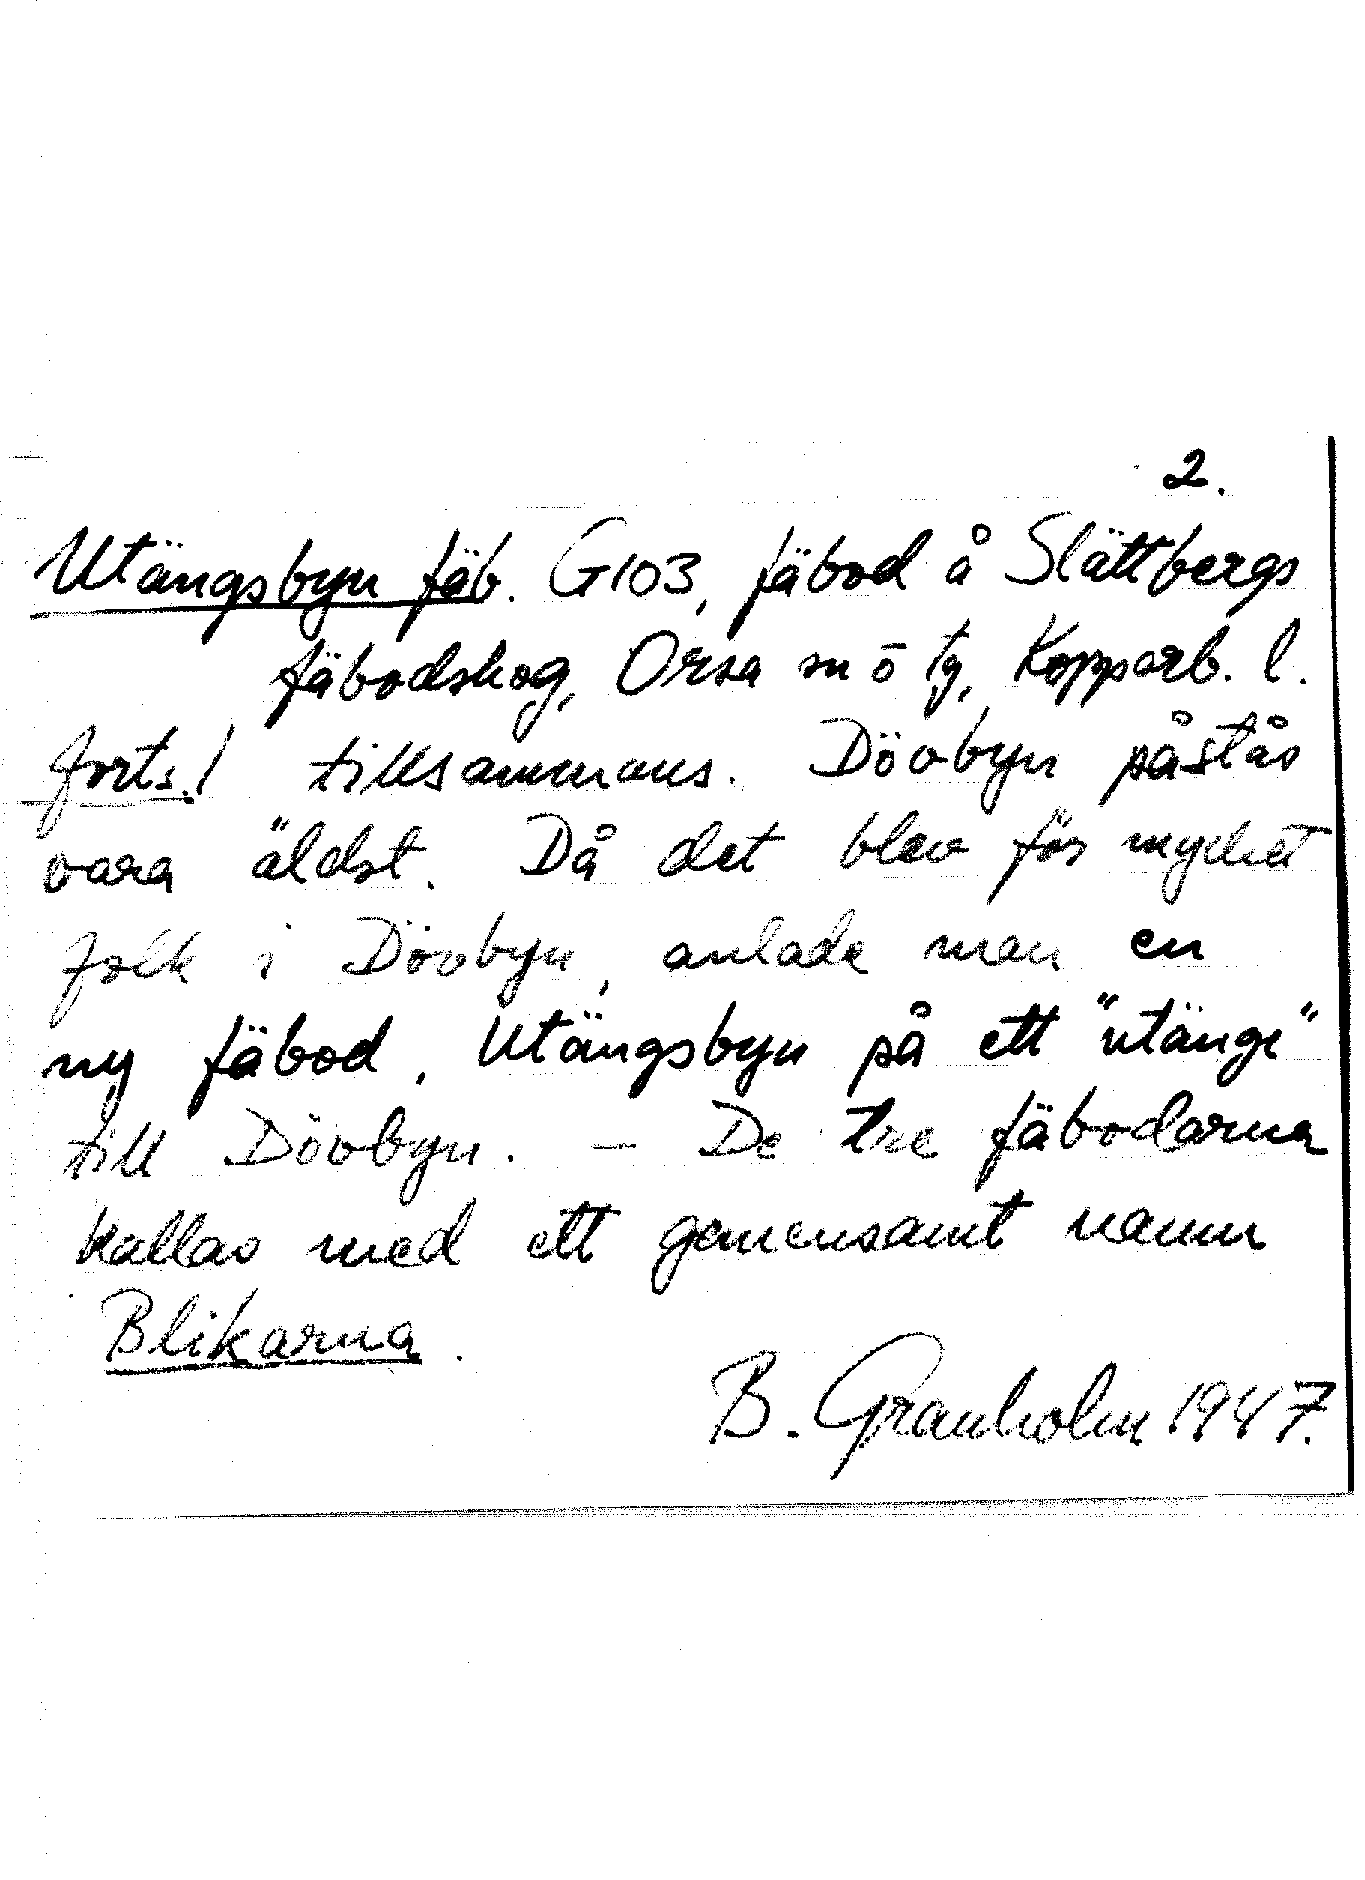 2.
Utängsbyn fäb. G103, fäbod å Slättbergs
fäbodskog, Orsa sn o tg, Kopparb. l.
forts./ tillsammans. Dövbyn påstås
vara äldst. Då det blev för mycket
folk i Dövbyn, anlade man en
ny fäbod, Utängsbyn på ett "utänge"
till Dövbyn. – De tre fäbodarna
kallas med ett gemensamt namn
Blikarna.
B. Granholm 1947.